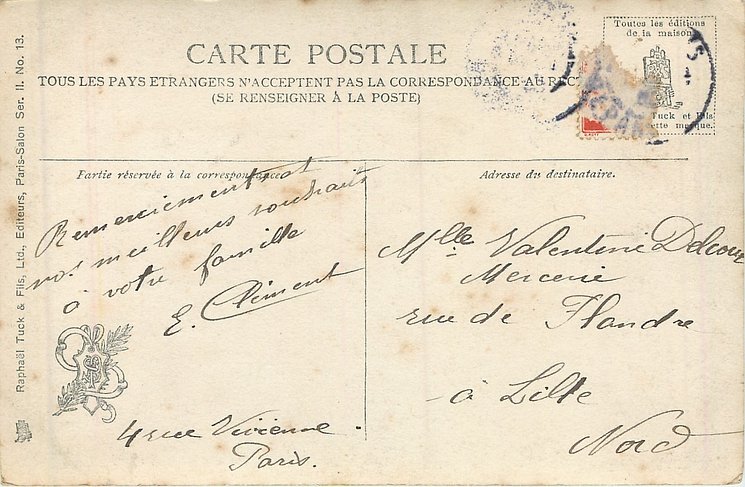 CARTE POSTALE
TOUS LES PAYS ETRANGERS N'ACCEPTENT PAS LA CORRESPONDANCE AU
(SE RENSEIGNER À LA POSTE)
Toutes les éditions
de la maison
Tuck et Fils
cette marque.
Partie réservée à la correspondance
Remerciements et
nos meilleurs souhaits
à votre famille
E. Clément
4 rue Vivienne
Paris.
Adresse du destinataire.
Mlle Valentine Delcour
Mercerie
rue de Flandre
à Lille
Nord
Raphaël Tuck & Fils, Ltd., Editeurs, Paris-Salon Ser. II. No. 13.